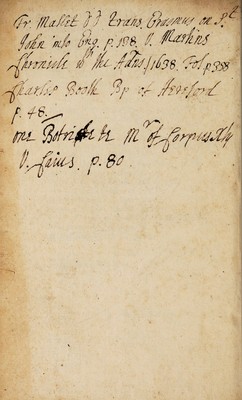 Fr. Mallet DD trans. Erasmus on St
John into Eng. p. 188. V. Martins
Chronicle in the Adns 1638. Fol. p 388
Charles Booth Bp of Hereford
p. 48.
one Botri te Mr of Corpus Xty
V. Caius. p. 80.